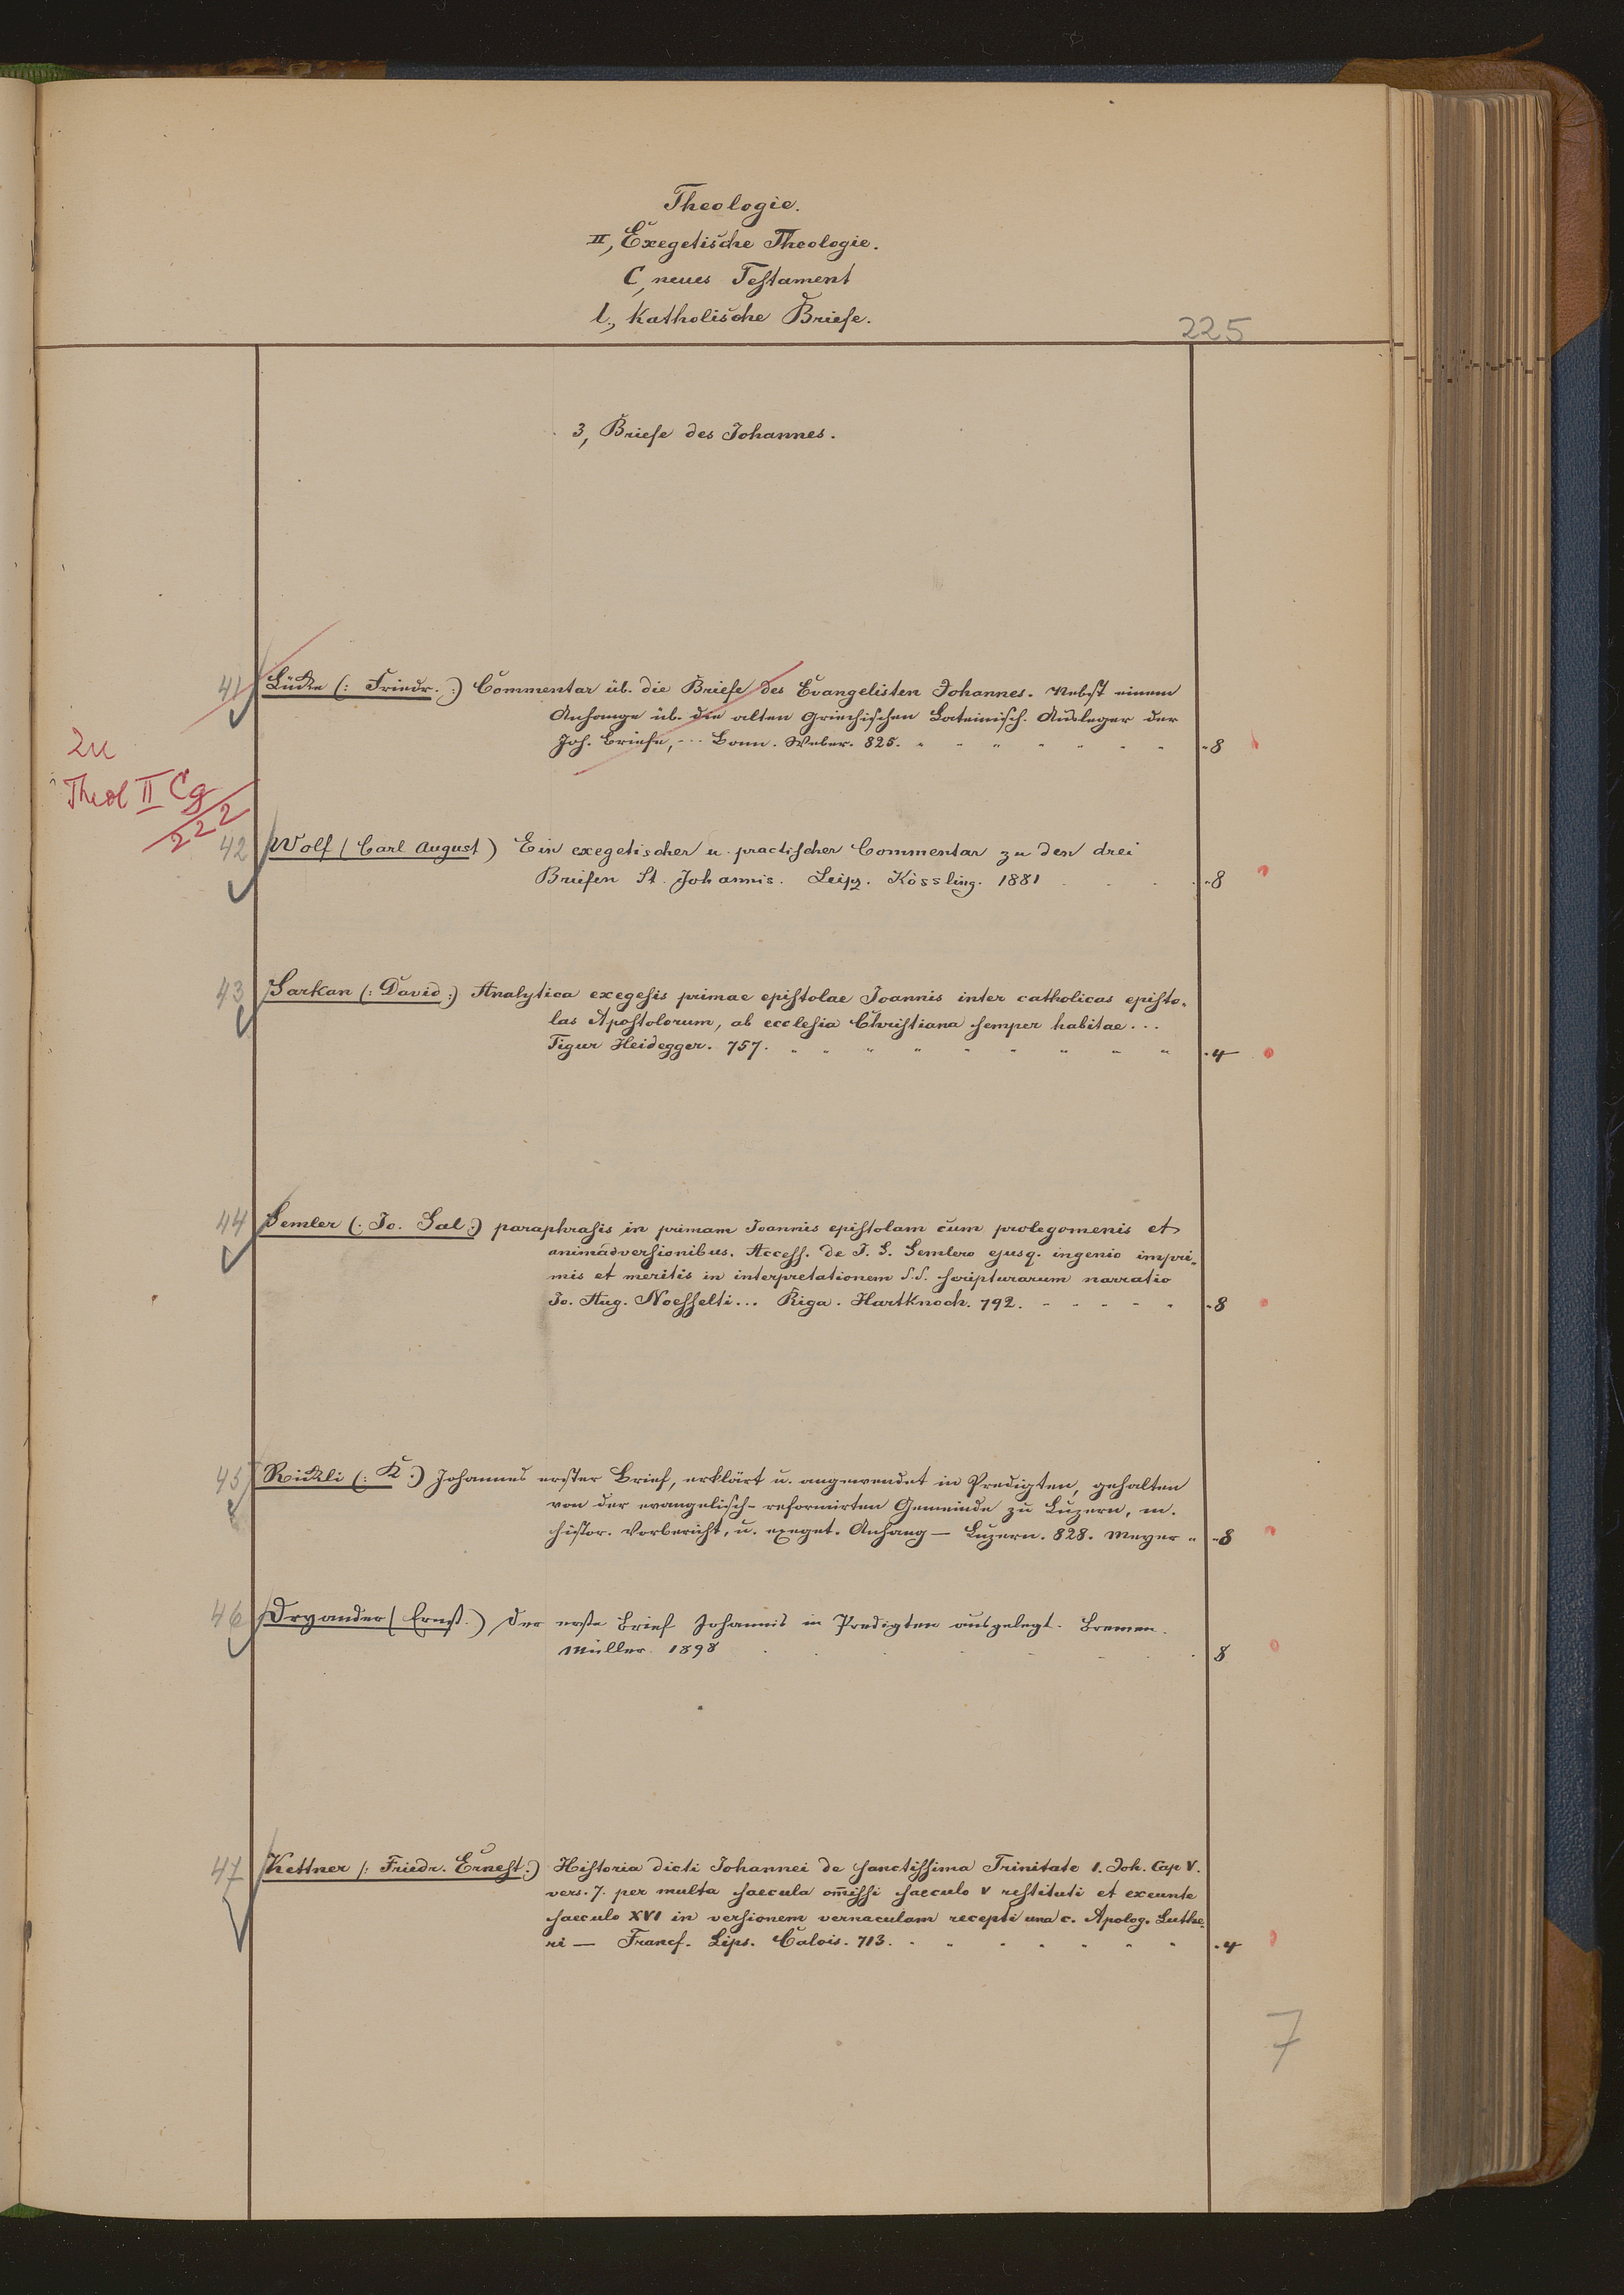 Theologie.
II, Exegetische Theologie.
C, neues Testament
l., Katholische Briefe.
225
3, Briefe des Johannes.
41 Lücke (: Friedr. :) Commentar üb. die Briefe des Evangelisten Johannes. Nebst einem
Anhange üb. die alten Griechischen Lateinisch. Ausleger der
Joh. Briefe, ... Bonn. Weber. 825. 8
zu
Theol II Cg
222
42 Wolf (Carl August) Ein exegetischer u. practischer Commentar zu den drei
Briefen St. Johannis. Leipz. Kössling. 1881 8
43 Sarkan (: David :) Analytica exegesis primae epistolae Joannis inter catholicas episto-
las Apostolorum, ab ecclesia Christiana semper habitae ...
Tigur Heidegger. 757. 4
44 Semler (: Jo. Sal :) paraphrasis in primam Joannis epistolam cum prolegomenis et
animadversionibus. Access. de J. S. Semlero ejusq. ingenio impri-
mis et meritis in interpretationem S.S. scripturarum narratio
Jo. Aug. Noesselti ... Riga. Hartknoch. 792. 8
45 Rickli (: K :) Johannes erster Brief, erklärt u. angewendet in Predigten, gehalten
von der evangelisch-reformirten Gemeinde zu Luzern, m.
histor. Vorbericht, u. exeget. Anhang — Luzern. 828. Meyer 8
46 Dryander (Ernst.) Der erste Brief Johannis in Predigten ausgelegt. Bremen.
Müller. 1898 8
47 Kettner (: Friedr. Ernest :) Historia dicti Johannei de sanctissima Trinitate 1. Joh. Cap V.
vers. 7. per multa saecula omissi saeculo V restituti et exeunte
saeculo XVI in versionem vernaculam recepti una c. Apolog. Luthe-
ri — Francf. Lips. Calvis. 713. 4
7